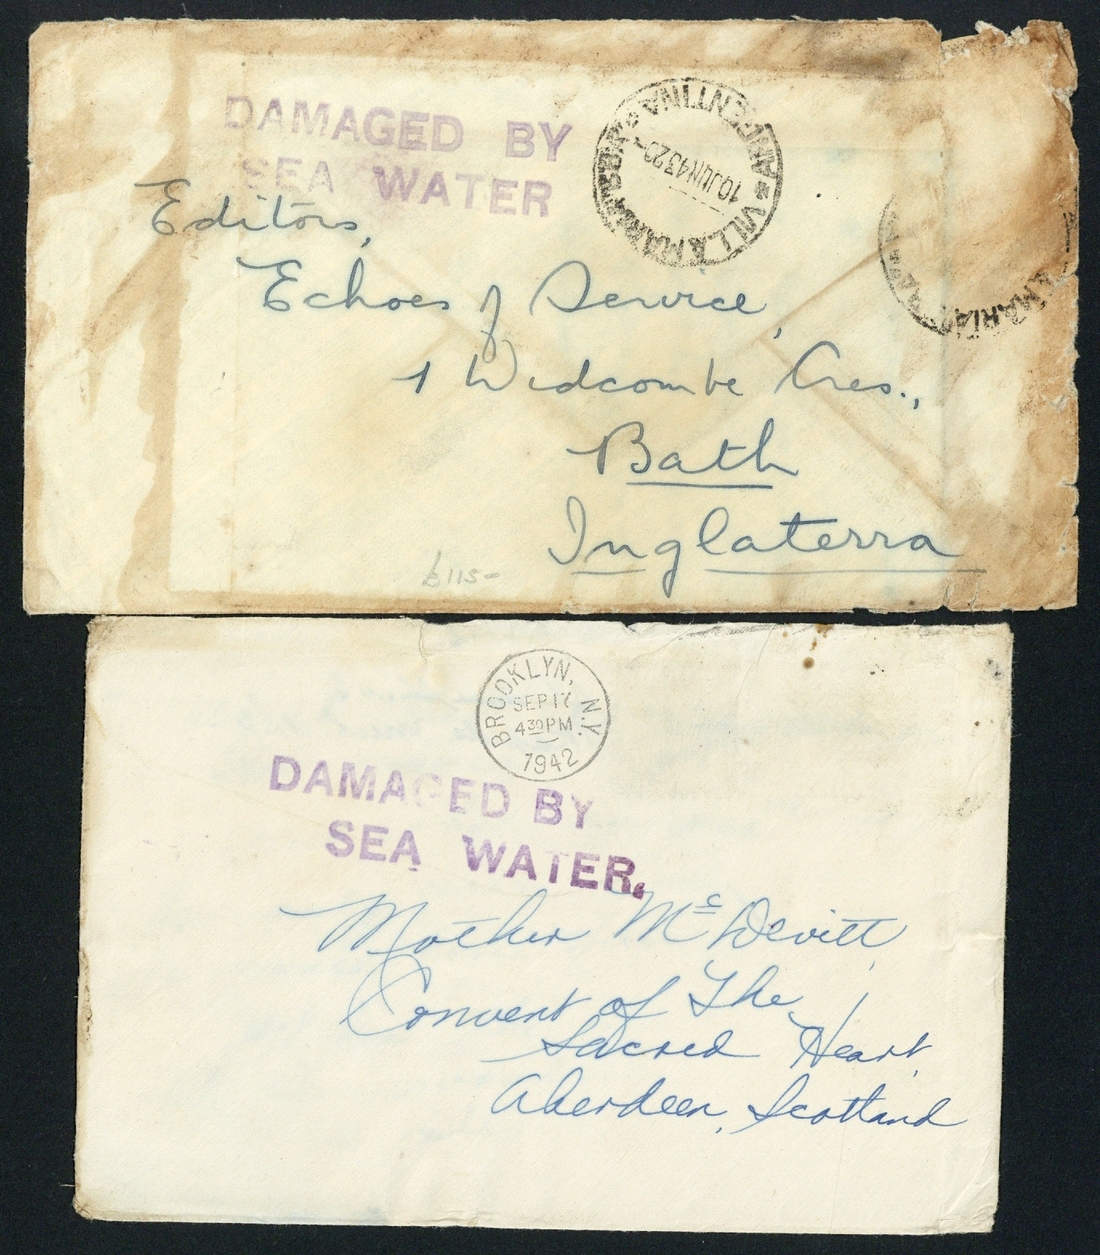 DAMAGED BY
SEA WATER
VILLA MARIA
ARGENTINA
10 JUN 43 20
Editors,
Echoes of Service,
1 Widcombe Cres.,
Bath
Inglaterra
£115-
BROOKLYN, N.Y.
SEP 17
4 30 PM
1942
DAMAGED BY
SEA WATER.
Mother McDevitt,
Convent of The
Sacred Heart,
Aberdeen, Scotland